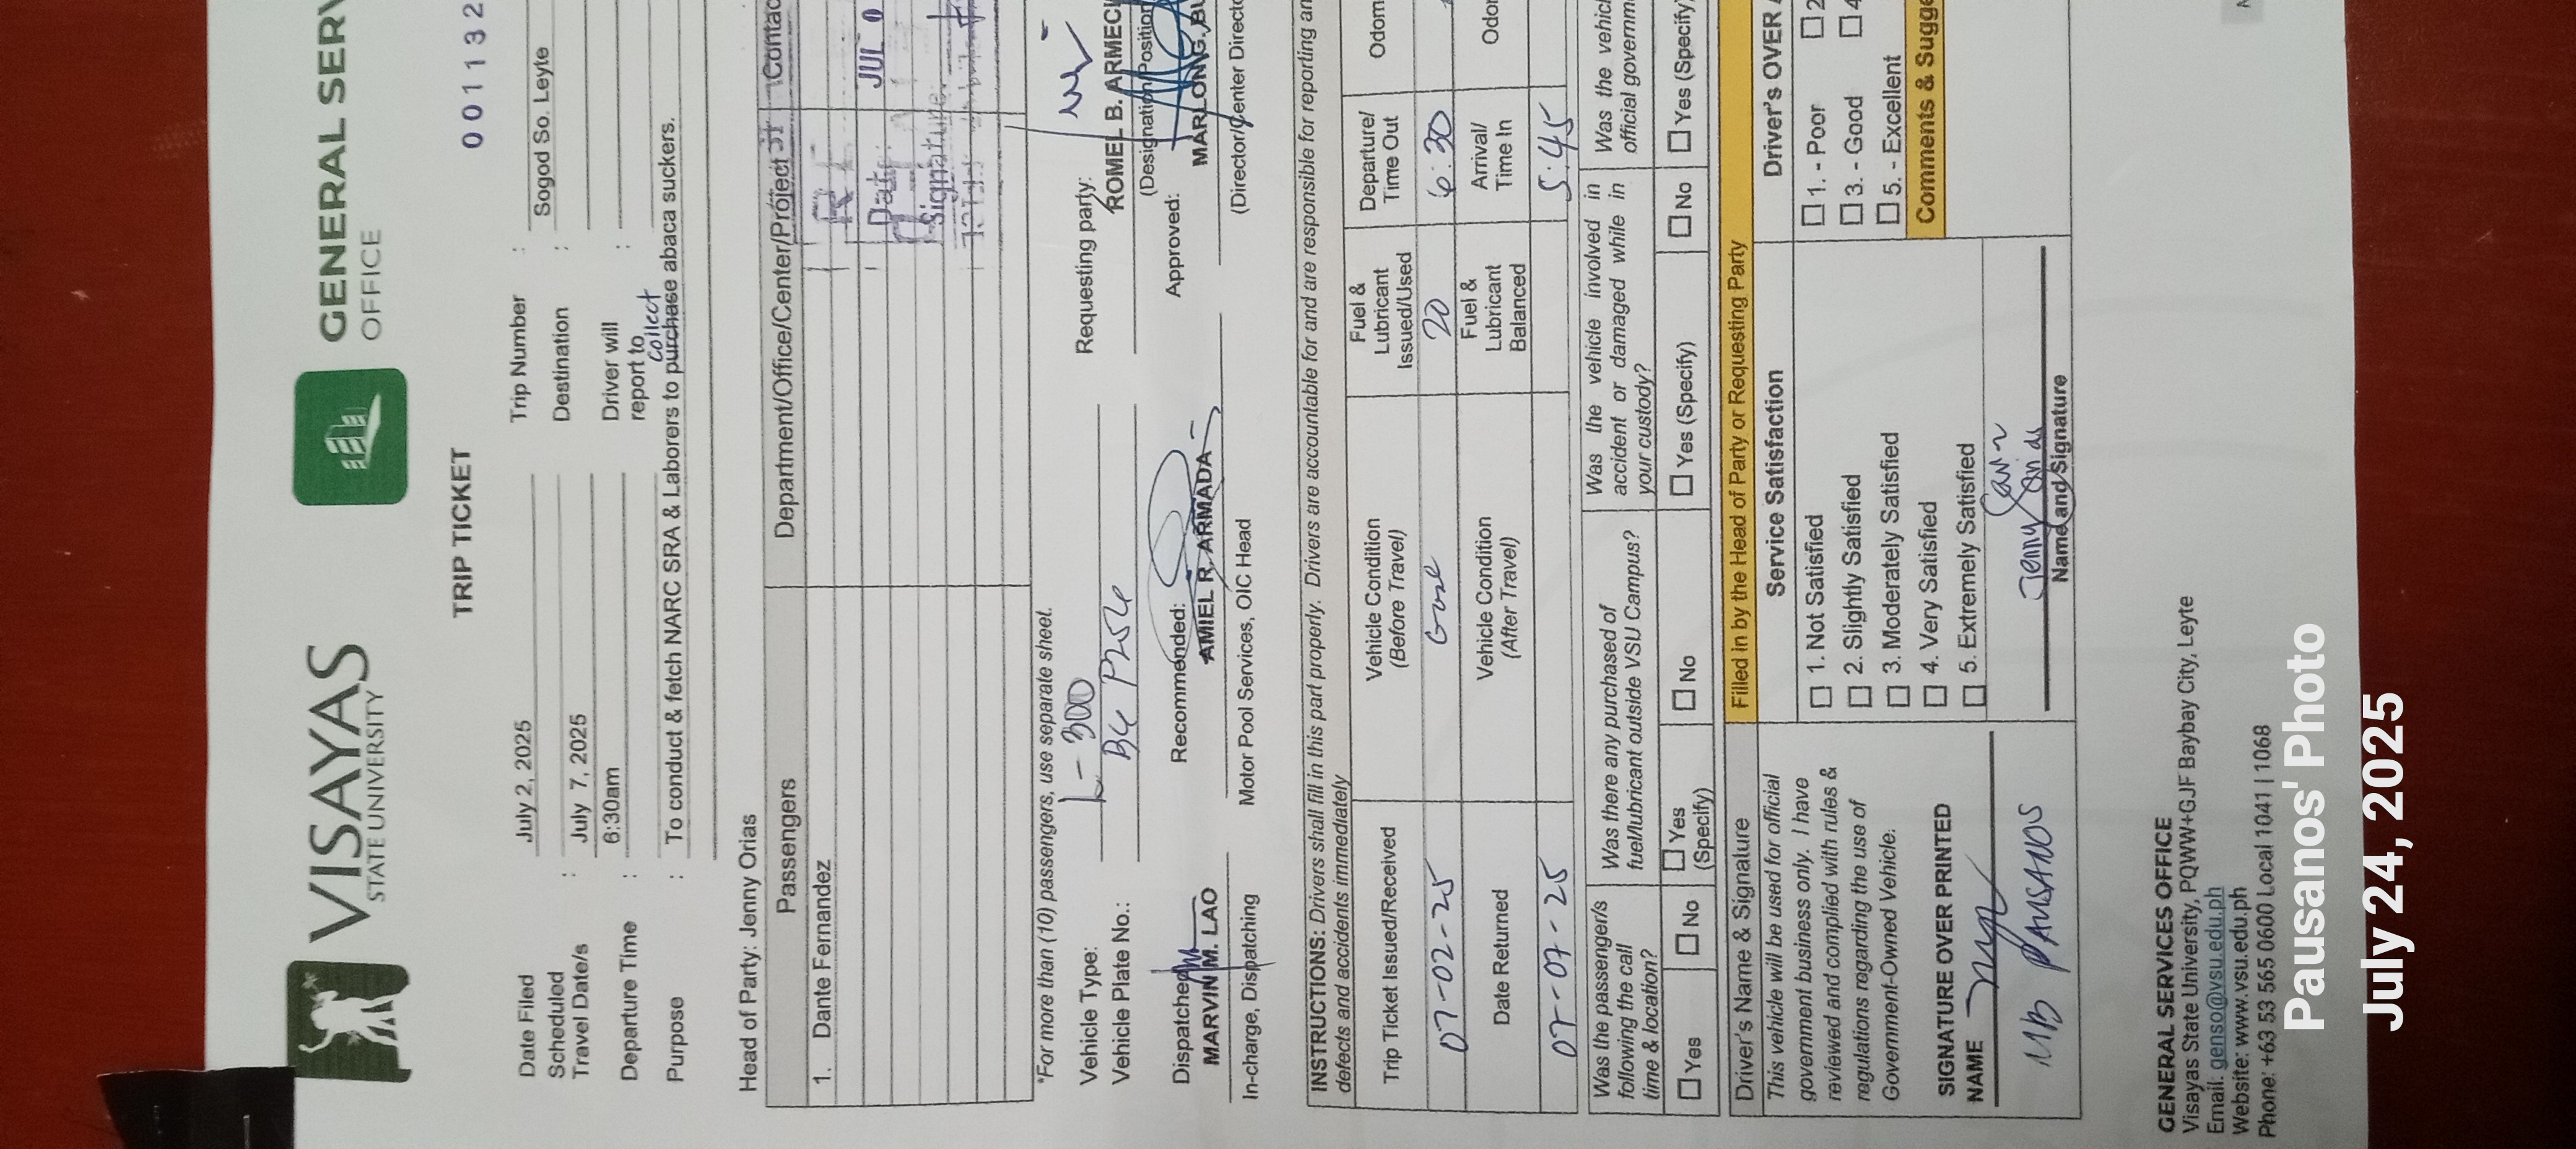 VISAYAS
STATE UNIVERSITY
GENERAL SERV
OFFICE
TRIP TICKET
001132
Date Filed July 2, 2025 Trip Number : Sogod So. Leyte
Scheduled Travel Date/s : July 7, 2025 Destination :
Departure Time : 6:30am Driver will report to :
collect
Purpose : To conduct & fetch NARC SRA & Laborers to purchase abaca suckers.
Head of Party: Jenny Orias
Passengers Department/Office/Center/Project Contac
1. Dante Fernandez
JUL 0
Date:
Signature:
*For more than (10) passengers, use separate sheet.
Vehicle Type: L-300
Vehicle Plate No.:
Requesting party:
ROMEL B. ARMECI
(Designation/Position
Dispatched
MARVIN M. LAO
In-charge, Dispatching
Recommended:
AMIEL R. ARMADA
Motor Pool Services, OIC Head
Approved:
MARLON G. BU
(Director/Center Directo
INSTRUCTIONS: Drivers shall fill in this part properly. Drivers are accountable for and are responsible for reporting an
defects and accidents immediately
Trip Ticket Issued/Received Vehicle Condition (Before Travel) Fuel & Lubricant Issued/Used Departure/ Time Out Odom
07-02-25 Good 20 6:30
Date Returned Vehicle Condition (After Travel) Fuel & Lubricant Balanced Arrival/ Time In Odor
07-07-25 5:45
Was the passenger/s following the call time & location?
Was there any purchased of fuel/lubricant outside VSU Campus?
Was the vehicle involved in accident or damaged while in your custody?
Was the vehicl official governme
Yes No Yes (Specify) No Yes (Specify) No Yes (Specify)
Driver's Name & Signature
This vehicle will be used for official
government business only. I have
reviewed and complied with rules &
regulations regarding the use of
Government-Owned Vehicle.
SIGNATURE OVER PRINTED
NAME
MB PAUSANOS
Filled in by the Head of Party or Requesting Party
Service Satisfaction
1. Not Satisfied
2. Slightly Satisfied
3. Moderately Satisfied
4. Very Satisfied
5. Extremely Satisfied
Jenny
Name and Signature
Driver's OVER
1. - Poor 2
3. - Good 4
5. - Excellent
Comments & Sugge
GENERAL SERVICES OFFICE
Visayas State University, PQWW+GJF Baybay City, Leyte
Email: genso@vsu.edu.ph
Website: www.vsu.edu.ph
Phone: +63 53 565 0600 Local 1041 | 1068
Pausanos' Photo
July 24, 2025